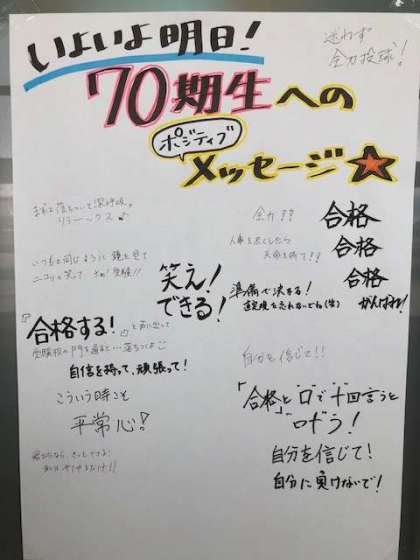 いよいよ明日!
70期生への
ポジティブ
メッセージ★
迷わず
全力投球!
まずは落ちついて深呼吸。
リラ〜ックス♪
いつもと同じように鏡を見て
ニコリと笑って さあ!受験!!
笑え!
できる!
全力!!
合格
合格
合格
がんばれ!
人事を尽くしたら
天命を待て!!
準備で決まる!
『合格する!』と声に出して
受験校の門を通ると…落ちつくよ
自信を持って、頑張って!
こういう時こそ
平常心!
自分を信じて!!
「合格」と口で十回言うと
叶う!
自分を信じて!
自分に負けないで!